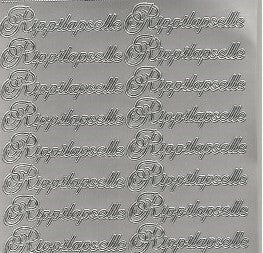 Rippilapselle Rippilapselle
Rippilapselle Rippilapselle
Rippilapselle Rippilapselle
Rippilapselle Rippilapselle
Rippilapselle Rippilapselle
Rippilapselle Rippilapselle
Rippilapselle Rippilapselle
Rippilapselle Rippilapselle